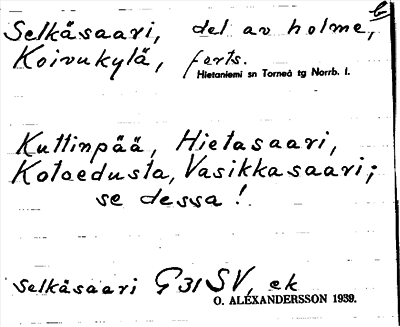 b
Selkäsaari, del av holme,
Koivukylä, forts.
Hietaniemi sn Torneå tg Norrb. l.
Kuttinpää, Hietasaari,
Kotaedusta, Vasikkasaari;
se dessa!
Selkäsaari G 31 SV, ek
O. ALEXANDERSSON 1939.